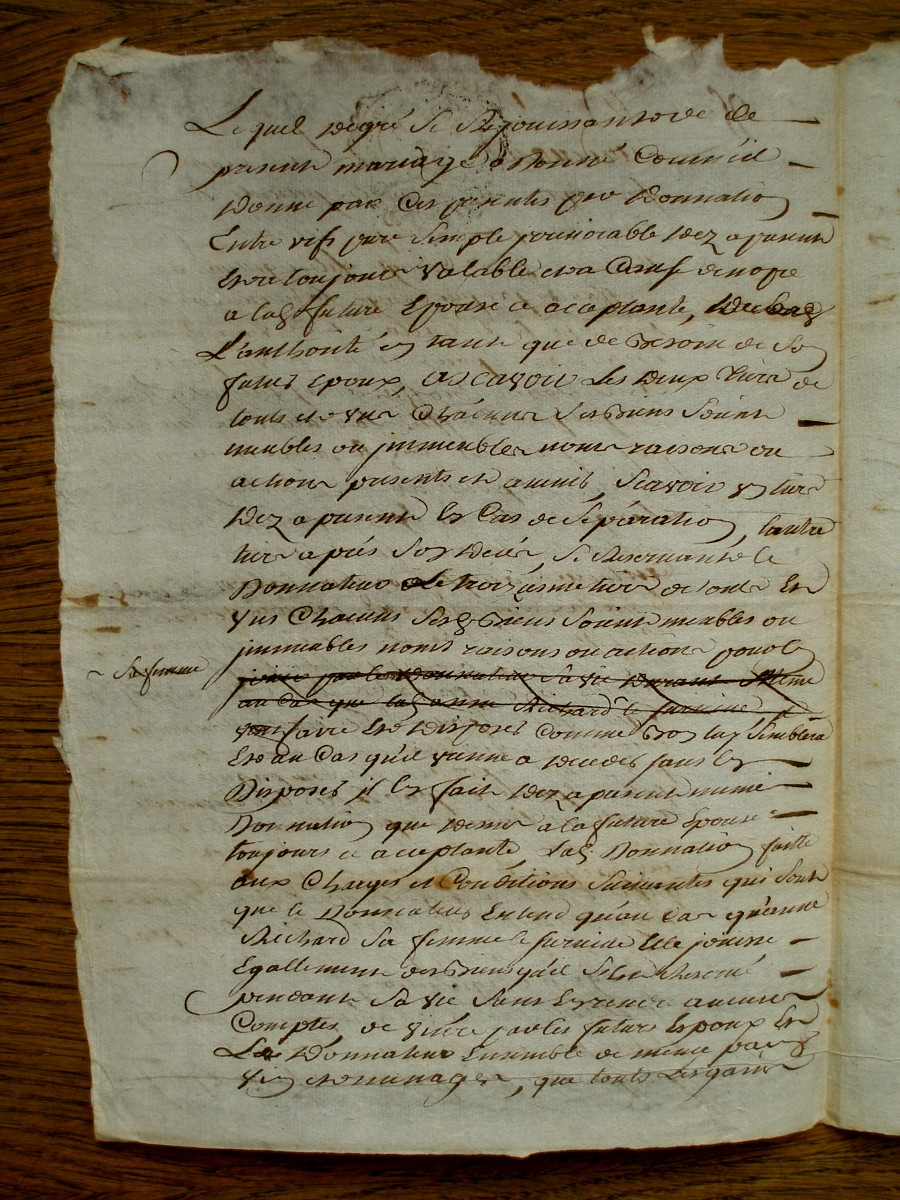 Lequel de gré se rejouissant de
present mariage a donné comme il
donne par ces presentes par donnation
Entre vifs pure simple jrrevocable dez a present
Et toujours valable et a cause de nopce
a lad future Epouse ce acceptante, de
L'authorité en tant que de besoin de son
futur Epoux, ascavoir les deux tiers de
touts et un chacuns ses biens soient
meubles ou jmmeubles noms raisons ou
actions presents et avenir, scavoir un tiers
dez a present En cas de separation, lautre
tiers apres son deces, se reservant le
Donnateur le troizieme tiers de touts Et
uns chacuns sesd biens soient meubles ou
jmmeubles noms raisons ou actions pour
jouir par le donnateur sa vie durant Même
au cas que lad anne Richard le survive
sa femme
en faire Et disposer comme bon luy semblera
Et au cas qu'il vienne a deceder sans En
Disposer jl En fait dez a present meme
Donnation que dessus a la future Epouse
toujours ce acceptante, lad Donnation faitte
aux charges et conditions suivantes qui sont
que le Donnateur Entend qu'au cas qu'anne
Richard sa femme le survive Elle jouisse
Egallement des biens qu'il s'est reservé
pendant sa vie sans En rendre aucuns
Comptes, de vivre par les futurs Epoux Et
Le Donnateur Ensemble de meme pain
vin et menage, que touts les gains